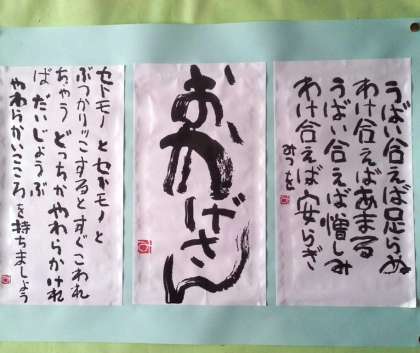 うばい合えば足らぬ
わけ合えばあまる
うばい合えば憎しみ
わけ合えば安らぎ
みつを
おかげさん
セトモノとセトモノと
ぶつかりッこするとすぐこわれ
ちゃう どっちかやわらかけれ
ば だいじょうぶ
やわらかいこころを持ちましょう